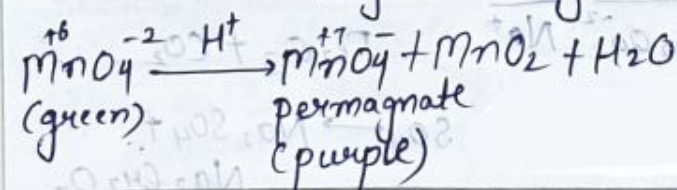 +6 +7
MnO4^-2 H+ → MnO4^- + MnO2 + H2O
(green) permagnate
(purple)